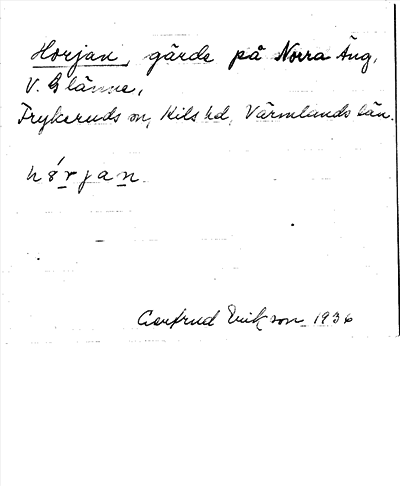 Horjan, gärde på Norra Äng,
V. Glänne,
Frykeruds sn, Kils hd, Värmlands län.
hórjan.
Gertrud Erikson 1936